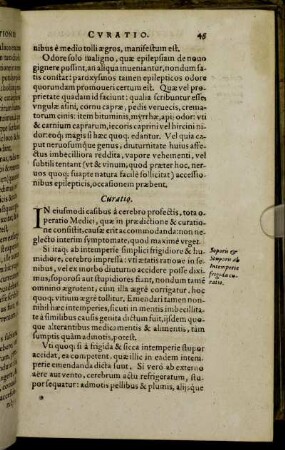 CVRATIO. 45
nibus è medio tolli ægros, manifestum est.
Odore solo maligno, quæ epilepsiam de nouo
gignere possint, an aliqua inueniantur, nondum satis
constat: paroxysmos tamen epilepticos odore
quorundam promoueri certum est. Quæ vel proprietate
quadam id faciant: qualia scribuntur esse:
vngulæ asini, cornu capræ, pedis veruecis, crematorum
cinis: item bituminis, myrrhæ, api: odor: vti
& carnium caprarum, iecoris caprini vel hircini nidor:
eoq; magis si hæc quoq; edantur. Vel quia caput
neruosumque genus, diuturnitate huius affectus
imbecilliora reddita, vapore vehementi, vel
subtili tentari (vt & vinum, quod præter hoc, neruos
quoq; suapte natura facile sollicitat) accessionibus
epilepticis, occasionem præbent.
Curatio.
IN eiusmodi casibus à cerebro profectis, tota operatio
Medici, quæ in prædictione & curatione
consistit, causæ erit accommodanda: non neglecto
interim symptomate, quod maximè vrget.
Si itaq; ab intemperie simplici frigidiore & humidiore,
cerebro impressa: vti ætatis ratione in senibus,
vel ex morbo diuturno accidere posse diximus,
soporosi aut stupidiores fiant, nondum tamen
omnino ægrotent; cum illa ægrè corrigatur, hoc
quoq; vitium ægrè tollitur. Emendari tamen nonnihil
hæc intemperies, sicuti in mentis imbecillitate
à similibus causis genita dictum fuit, ijsdem quoque
alterantibus medicamentis & alimentis, tam
sumptis quàm admotis, potest.
Vti quoq; si à frigida & sicca intemperie stupor
accidat, ea competent. quæ illic in eadem intemperie
emendanda dicta sunt. Si verò ab externo
aëre aut vento, cerebrum actu refrigeratum, stupor
sequatur: admotis pellibus & plumis, alijsque
Soporis &
stuporis ab
intemperie
frigida curatio.